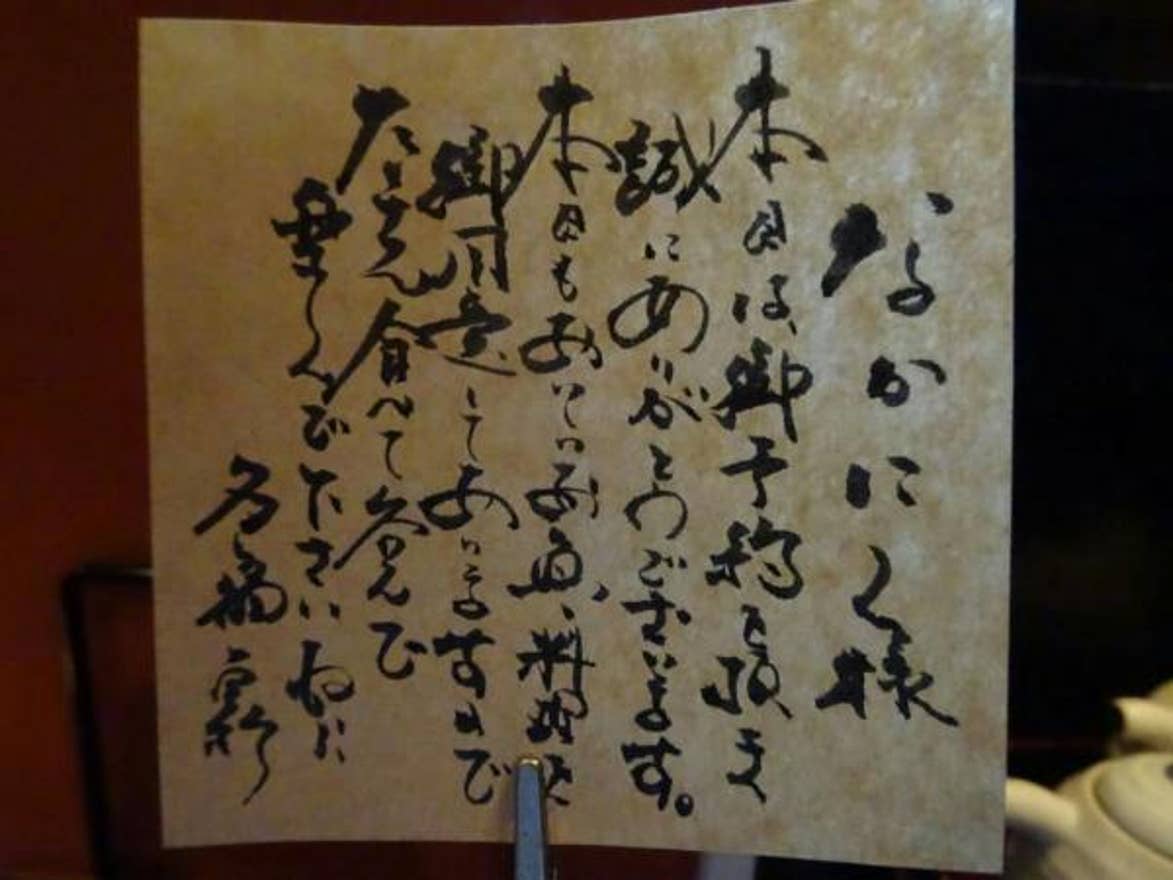 なかにく様
本日は、御予約を頂き
誠にありがとうございます。
本日もおいしいお魚、料理を
御用意してありますので
たくさん食べて飲んで
楽しんで下さいね